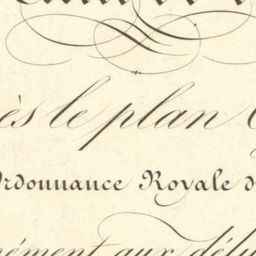 ès le plan
Ordonnance Royale d
nément aux délu